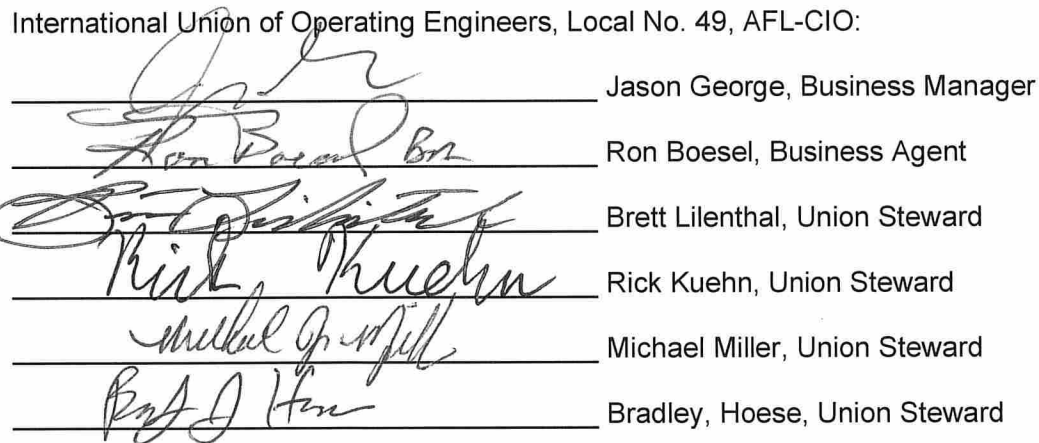 International Union of Operating Engineers, Local No. 49, AFL-CIO:
Jason George, Business Manager
Ron Boesel, Business Agent
Brett Lilenthal, Union Steward
Rick Kuehn Rick Kuehn, Union Steward
Michael Miller, Union Steward
Bradley, Hoese, Union Steward